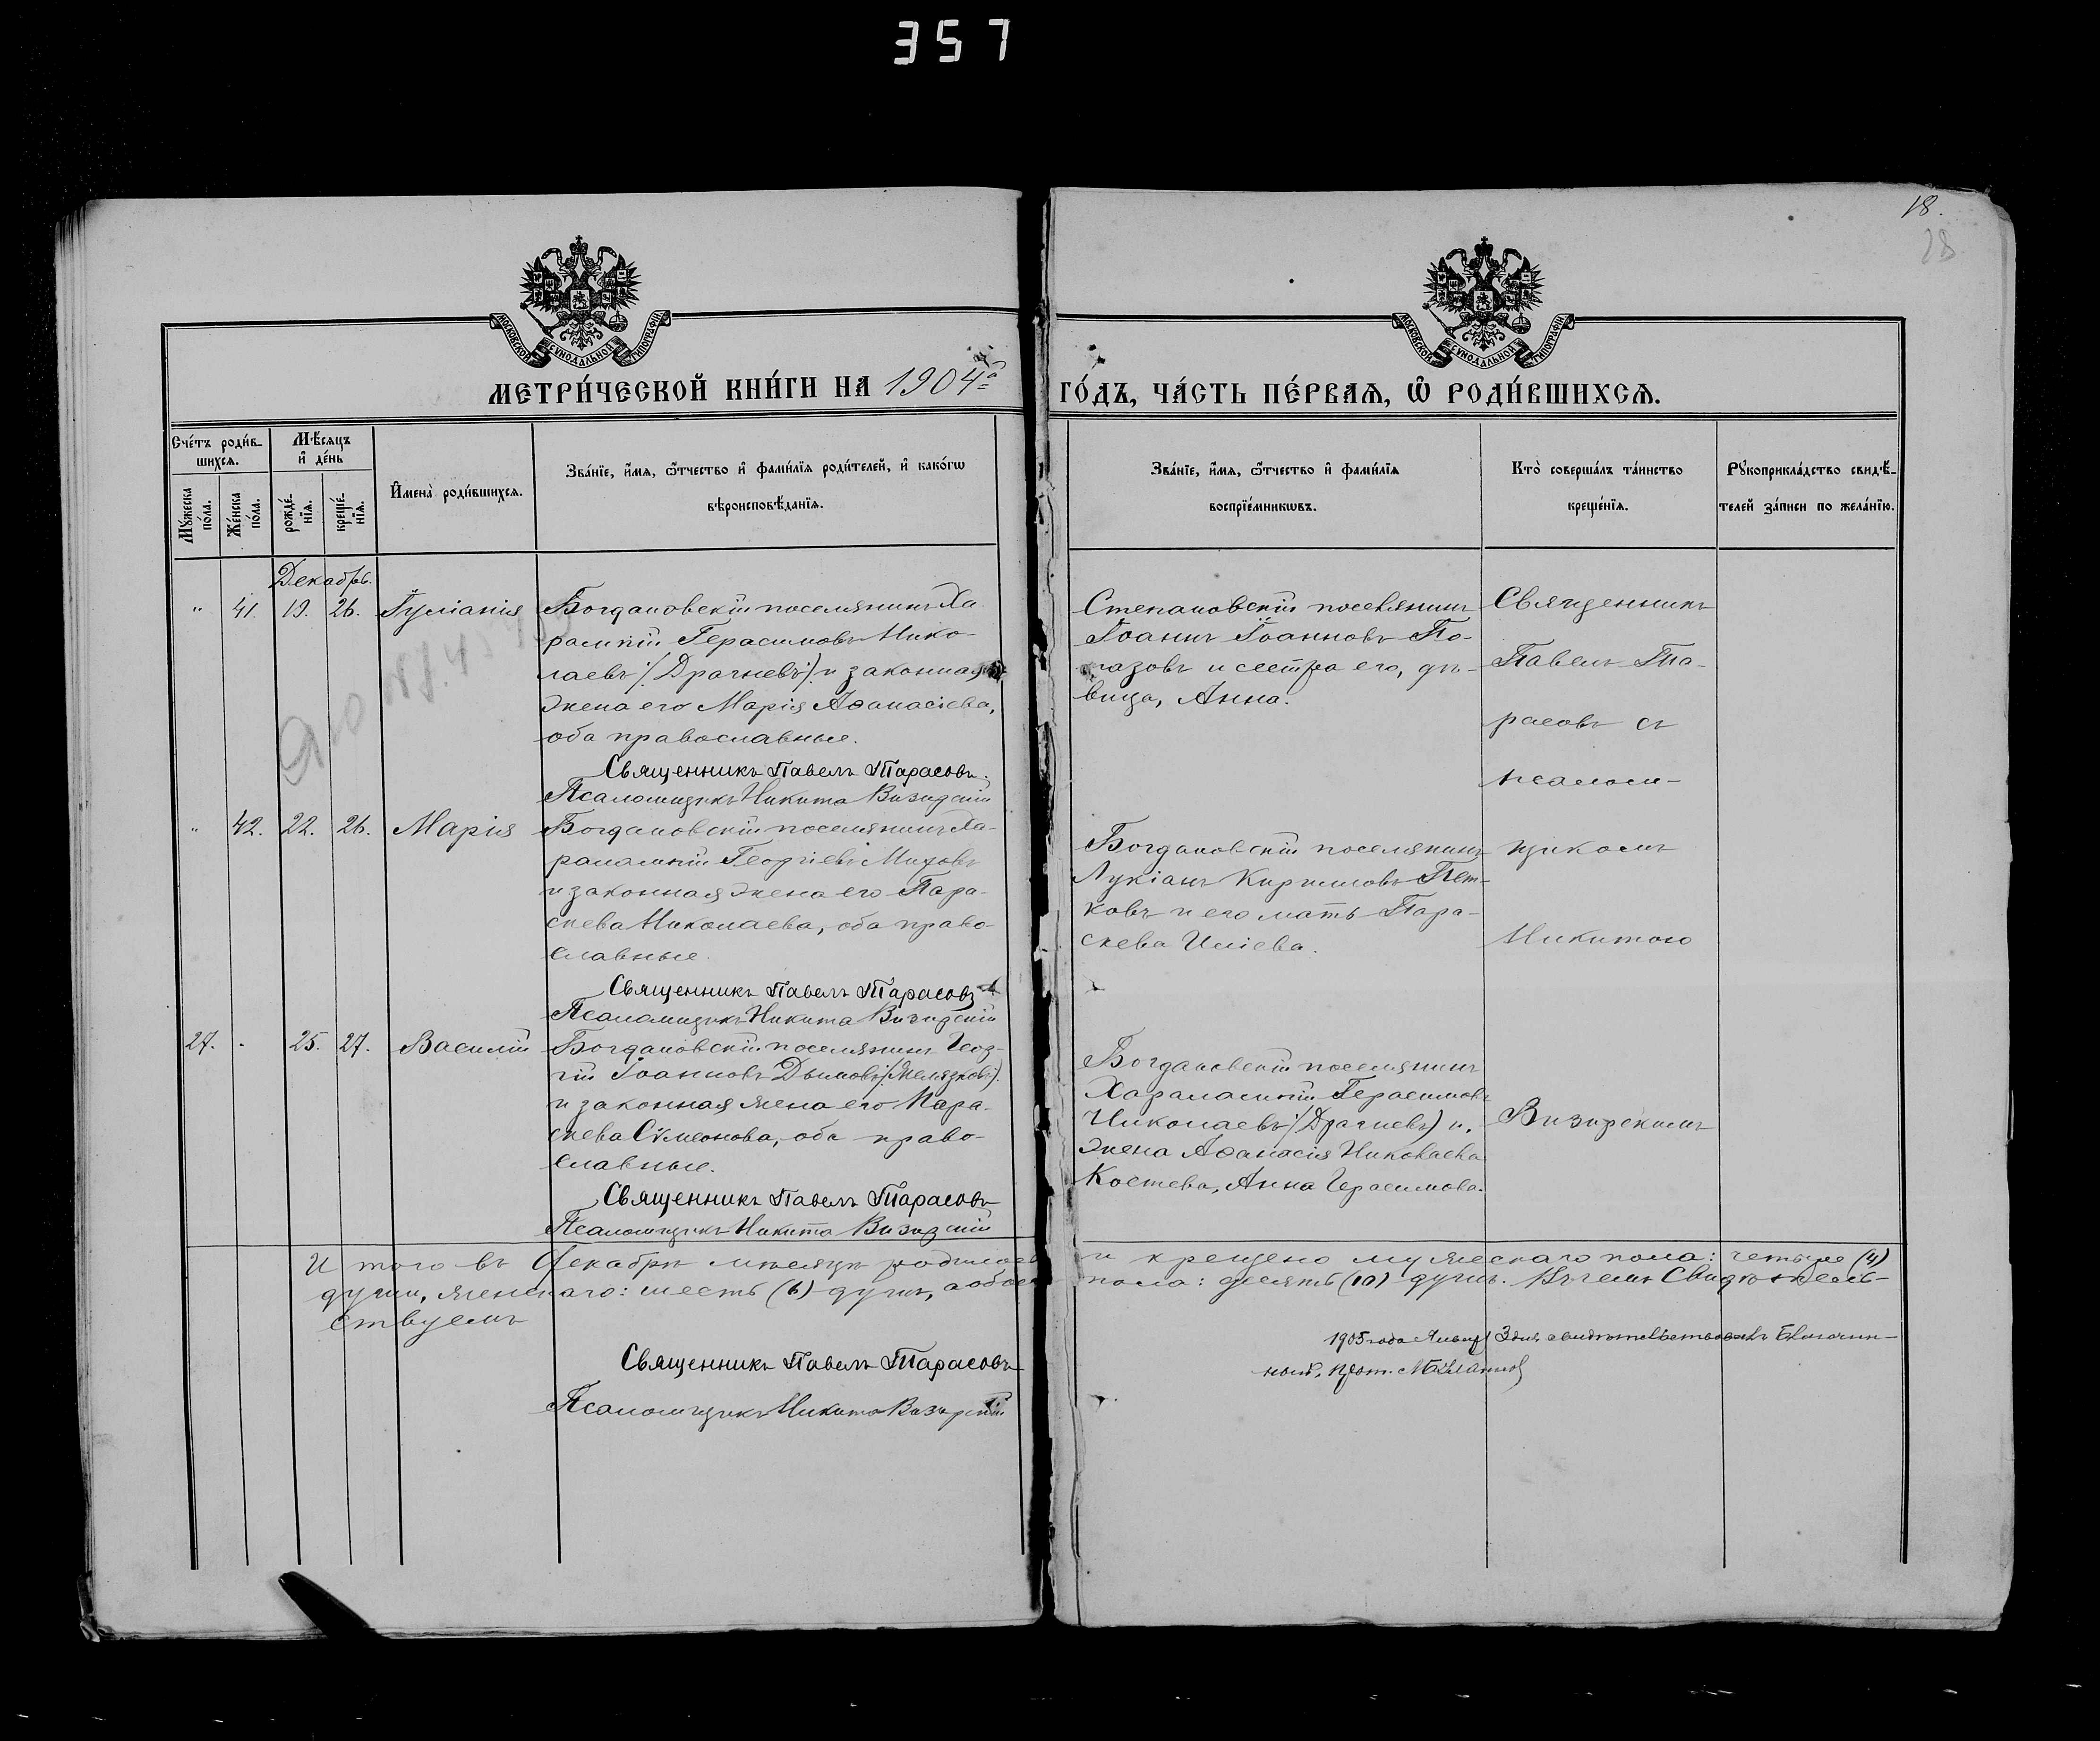 357
18.
28
МОСКОВСКОЙ СѴНОДАЛЬНОЙ ТИПОГРАФІИ
МОСКОВСКОЙ СѴНОДАЛЬНОЙ ТИПОГРАФІИ
МЕТРИ́ЧЕСКОЙ КНИ́ГИ НА 1904й
ГО́ДЪ, ЧА́СТЬ ПЕ́РВАЯ, Ѿ РОДИ́ВШИХСЯ.
Сче́тъ роди́в-
шихся.
Му́жеска по́ла.
Же́нска по́ла.
Мѣ́сяцъ
и҆ де́нь
рожде́-
нїя.
креще́-
нїя.
И҆мена̀ роди́вшихся.
Зва́нїе, и҆́мя, ѻ҆́тчество и҆ фами́лїя роди́телей, и҆ како́гѡ
вѣроисповѣ́данїя.
Зва́нїе, и҆́мя, ѻ҆́тчество и҆ фами́лїя
воспрїе́мникѡвъ.
Кто̀ соверша́лъ та́инство
креще́нїя.
Рꙋкоприкла́дство свидѣ́-
телей за́писи по жела́нїю.
Декабрь.
" 41. 19. 26. Іуліанія
Богдановскій поселянинъ Ха-
рампій Герасимовъ Нико-
лаевъ /:Драгневъ:/ и законная
жена его Марія Аѳанасіева,
оба православные.
Священникъ Павелъ Тарасовъ.
Псаломщикъ Никита Визирскій
Степановскій поселянинъ
Іоаннъ Іоанновъ По-
мазовъ и сестра его, дѣ-
вица, Анна.
Священникъ
Павелъ Та-
расовъ съ
псалом-
щикомъ
Никитою
Визирскимъ
" 42. 22. 26. Марія
Богдановскій поселянинъ Ха-
ралампій Георгіевъ Миховъ
и законная жена его Пара-
скева Николаева, оба право-
славные.
Священникъ Павелъ Тарасовъ
Псаломщикъ Никита Визирскій
Богдановскій поселянинъ
Лукіанъ Кирилловъ Пет-
ковъ и его мать Пара-
скева Иліева.
27. - 25. 27. Василій
Богдановскій поселянинъ Геор-
гій Іоанновъ Дымовъ /:Желязковъ:/.
и законная жена его Пара-
скева Сѵмеонова, оба право-
славные.
Священникъ Павелъ Тарасовъ
Псаломщикъ Никита Визирскій
Богдановскій поселянинъ
Харалампій Герасимовъ
Николаевъ /:Драгневъ/ и
жена Аѳанасія Николаева
Костева, Анна Герасимова.
И того въ Декабрѣ мѣсяцѣ родилось и крещено мужескаго пола: четыре (4)
души, женскаго: шесть (6) душъ, а обоего пола: десять (10) душъ. Въ чемъ Свидѣтель-
ствуемъ
Священникъ Павелъ Тарасовъ
Псаломщикъ Никита Визирскій
1905 года Января 3 дня свидѣтельствовалъ Благочин-
ный, Прот.